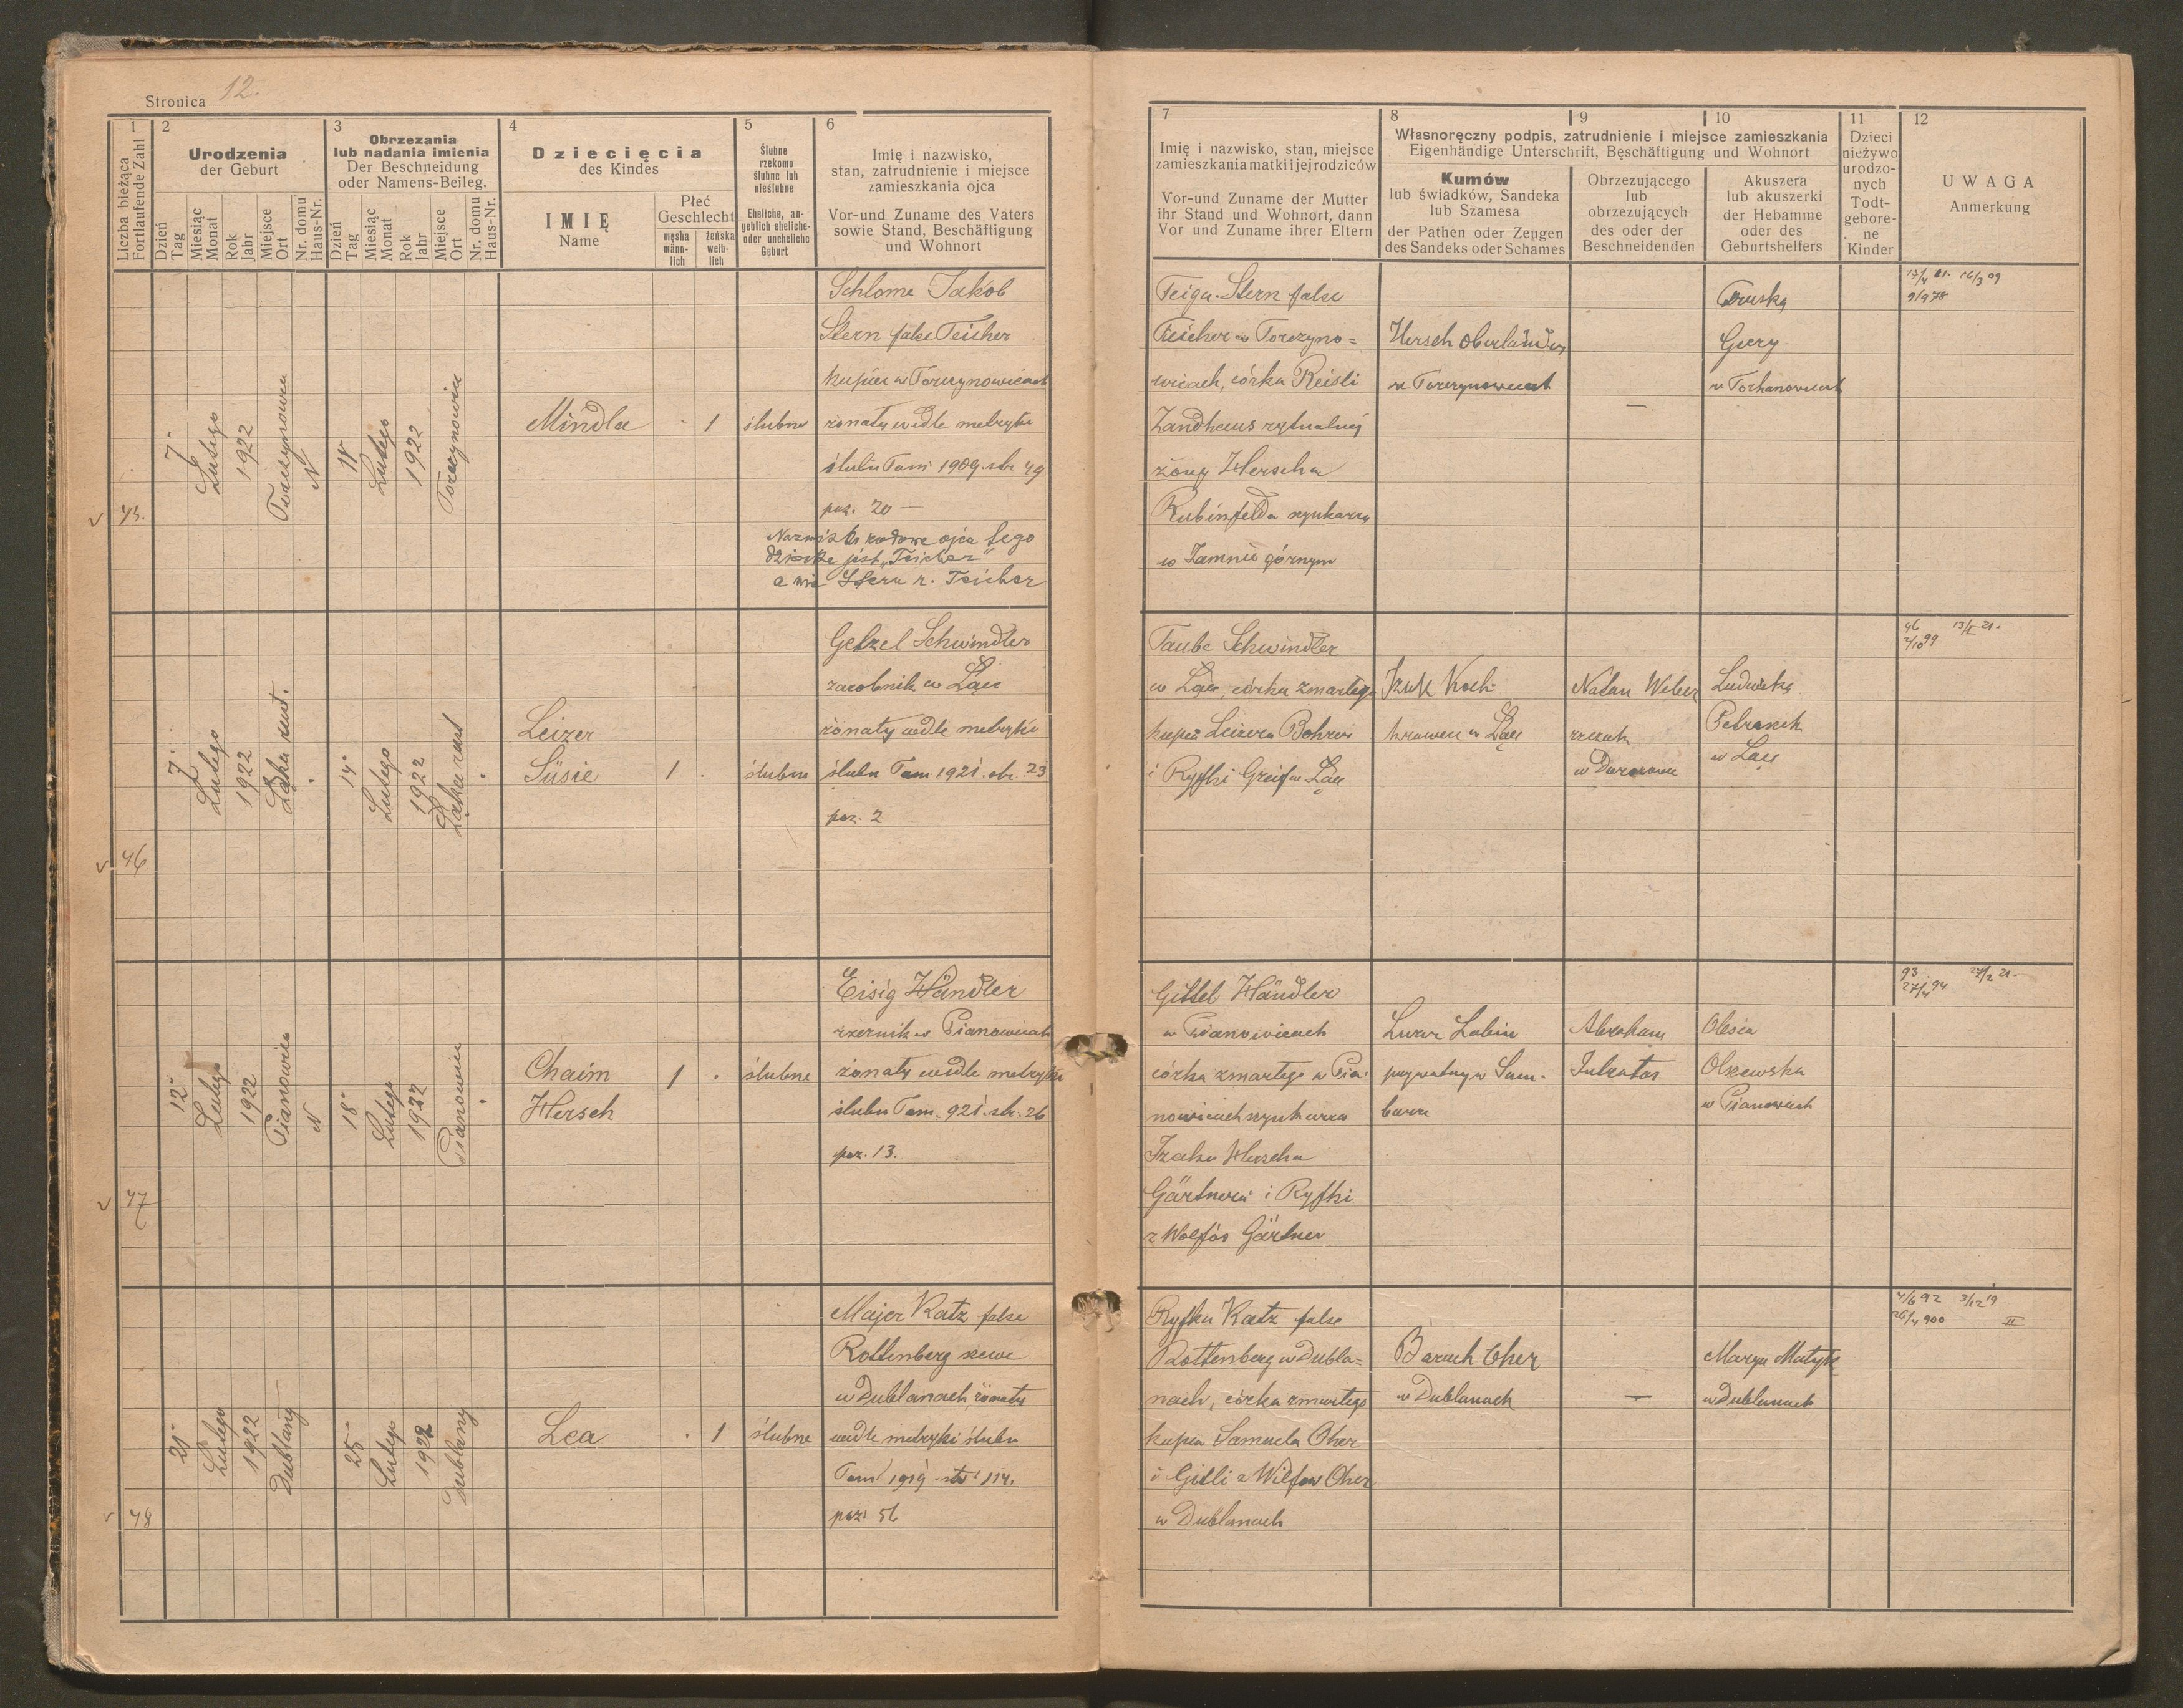 Stronica 12.
1
Liczba bieżąca
Fortlaufende Zahl
2
Urodzenia
der Geburt
Dzień
Tag
Miesiąc
Monat
Rok
Jahr
Miejsce
Ort
Nr. domu
Haus-Nr.
3
Obrzezania
lub nadania imienia
Der Beschneidung
oder Namens-Beileg.
Dzień
Tag
Miesiąc
Monat
Rok
Jahr
Miejsce
Ort
Nr. domu
Haus-Nr.
4
Dziecięcia
des Kindes
IMIĘ
Name
Płeć
Geschlecht
męska
männ-
lich
żeńska
weib-
lich
5
Ślubne
rzekomo
ślubne lub
nieślubne
Eheliche, an-
geblich eheliche-
oder uneheliche
Geburt
6
Imię i nazwisko,
stan, zatrudnienie i miejsce
zamieszkania ojca
Vor-und Zuname des Vaters
sowie Stand, Beschäftigung
und Wohnort
7
Imię i nazwisko, stan, miejsce
zamieszkania matki i jej rodziców
Vor-und Zuname der Mutter
ihr Stand und Wohnort, dann
Vor und Zuname ihrer Eltern
8
9
10
Własnoręczny podpis, zatrudnienie i miejsce zamieszkania
Eigenhändige Unterschrift, Beschäftigung und Wohnort
Kumów
lub świadków, Sandeka
lub Szamesa
der Pathen oder Zeugen
des Sandeks oder Schames
Obrzezującego
lub
obrzezujących
des oder der
Beschneidenden
Akuszera
lub akuszerki
der Hebamme
oder des
Geburtshelfers
11
Dzieci
nieżywo
urodzo-
nych
Todt-
gebore-
ne
Kinder
12
UWAGA
Anmerkung
45.
7
Lutego
1922
N
Lutego
1922
Mindla
1
ślubne
Schlome Jakob
Stern false Teicher
kupiec w Torczynowicach
żonaty wedle metryki
ślubu Tom 1909. str 49
poz. 20 —
Nazwisko rodowe ojca tego
dziecka jest „Teicher"
a nie Stern r. Teicher
Feiga Stern false
Teicher w Torczyno=
wicach, córka Reisli
Zandhaus rytualnej
żony Herscha
Rubinfelda szynkarza
w górnym
Hersch Oberländer
w Torczynowicach
—
Gery
46
7
Lutego
1922
Łąka rust.
14
Lutego
1922
Łąka rust
Leizer
Süsie
1
ślubne
Getzel Schwindler
zarobnik w Łące
żonaty wedle metryki
ślubu Tom 1921. str. 23
poz. 2
Taube Schwindler
w Łące, córka zmarłego
kupca Leizera Bohrera
i Ryfki Greif w Łące
Koch
krawiec w Łące
Natan Weber
rzezak
Ludwika
w Łące
46
2/10 99
47
12
Lutego
1922
Pianowice
N
18
Lutego
1922
Pianowice
Chaim
Hersch
1
ślubne
Eisig Händler
rzeźnik w Pianowicach
żonaty wedle metryki
ślubu Tom. 921. str. 26
poz. 13.
Gittel Händler
w Pianowicach
córka zmarłego w Pia-
nowicach szynkarza
Izaka Herscha
Gärtnera i Ryfki
z Wolfów Gärtner
prywatny w Sam-
borze
Abraham
Olesia
Olszewska
w Pianowicach
93
27/4 94
27/2 21
48
21
Lutego
1922
Dublany
25
Lutego
1922
Dublany
Lea
1
ślubne
Majer Katz false
Rottenberg szewc
w Dublanach, żonaty
wedle metryki ślubu
Tom 1919 str. 114.
poz. 56
Ryfka Katz false
Rottenberg w Dubla=
nach, córka zmarłego
kupca Samuela Oher
i Gitli z Wilfów Oher
w Dublanach
Baruch Oher
w Dublanach
—
Marya Matyk
w Dublanach
4/6 92 3/12 19
26/4 900 II